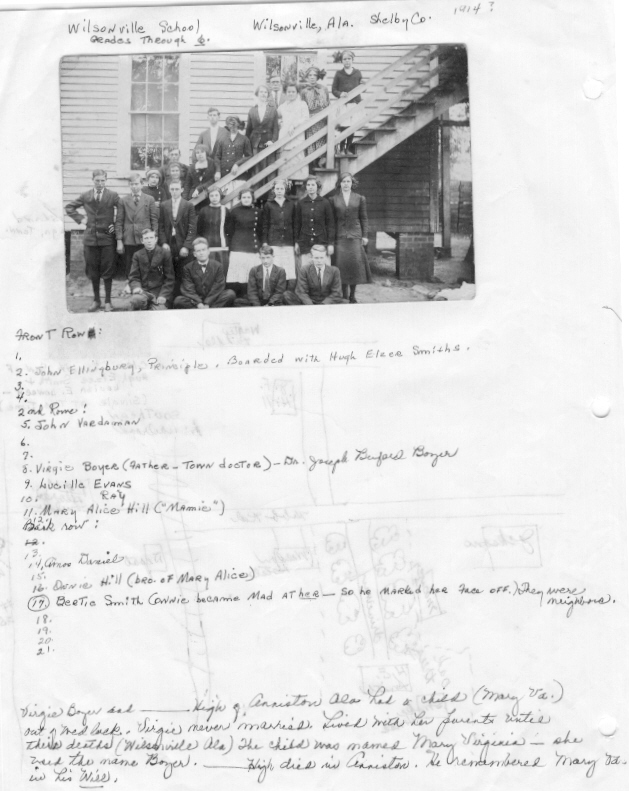 1914?
Wilsonville School Wilsonville, Ala. Shelby Co.
Grades Through 6.
FRONT Row:
1.
2. John Ellingburg, Principle. Boarded with Hugh Elzer Smiths.
3.
4.
2nd Rowe:
5. John Vardaman
6.
7.
8. Virgie Boyer (Father - Town doctor) - Dr. Joseph Buford Boyer
9. Lucille Evans
10. Ray
11. Mary Alice Hill ("Mamie")
Back row:
12.
13.
14. Amos Daniel
15.
16. Hill (bro. of Mary Alice)
17. Bertie Smith (Onnie became mad at her - so he marked her face off.) They were
neighbors.
18.
19.
20.
21.
Virgie Boyer and ____ High of Anniston Ala had a child (Mary Va.)
out of wed lock. Virgie never married. Lived with her parents until
there deaths (Wilsonville Ala) The child was named Mary Virginia - she
used the name Boyer. ____ High died in Anniston. He remembered Mary Va.
in his Will.